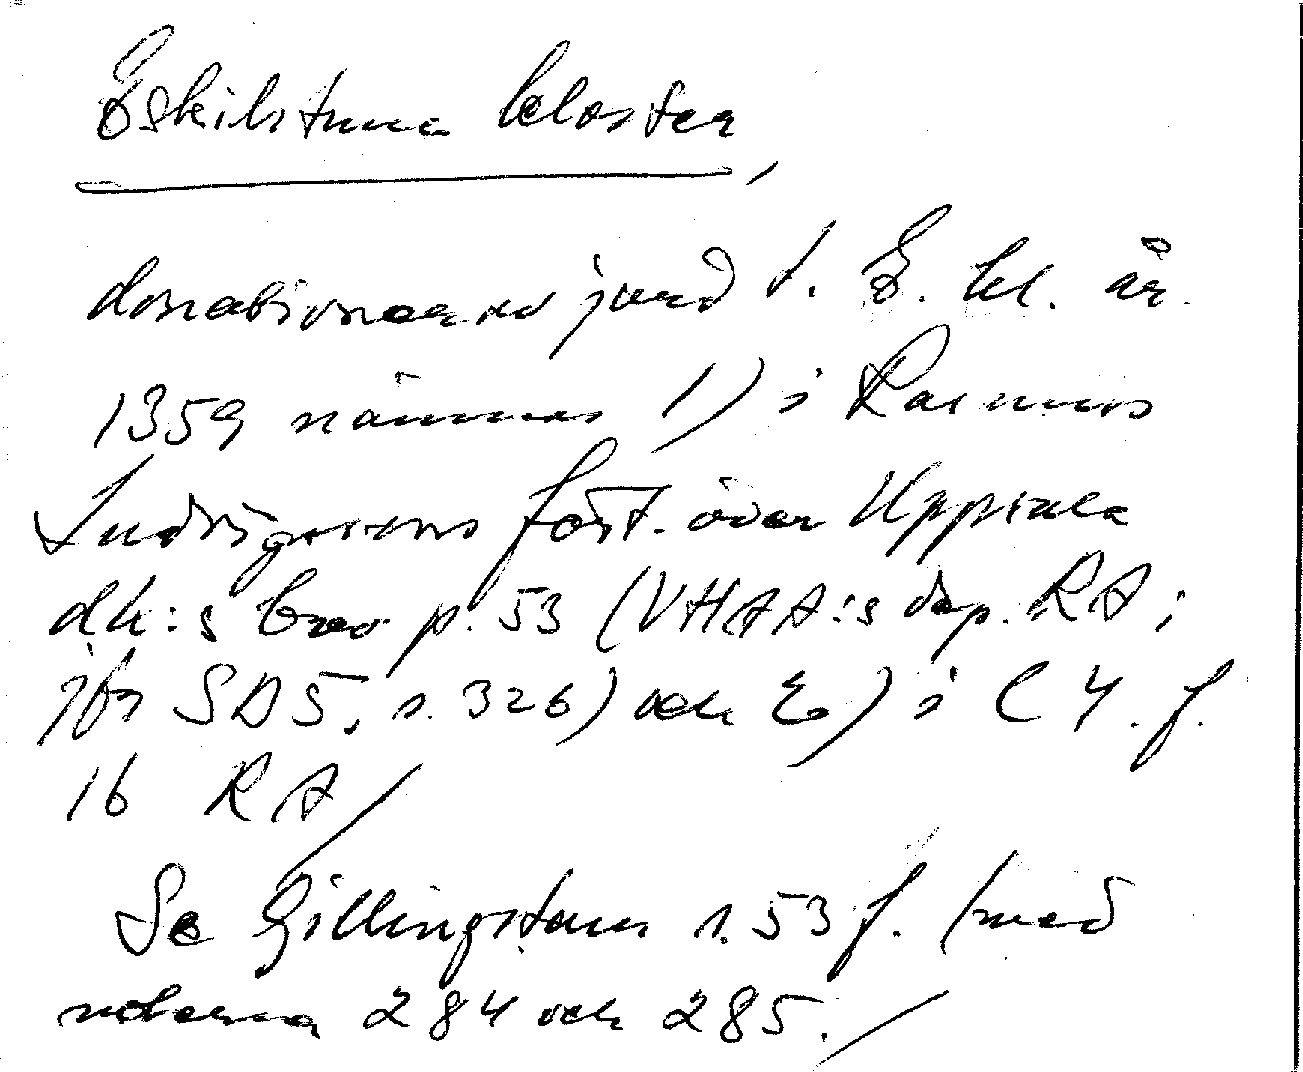 Eskilstuna kloster,
donationer av jord t. E. kl. år
1359 nämnas 1) i Rasmus
Ludvigssons fört. över Uppsala
dk:s brev p. 53 (VHAA:s dep. RA;
jfr SD 5, s. 326) och 2) i C 4. f.
16 RA/
Se Gillingstam s. 53 f. (med
noterna 284 och 285./